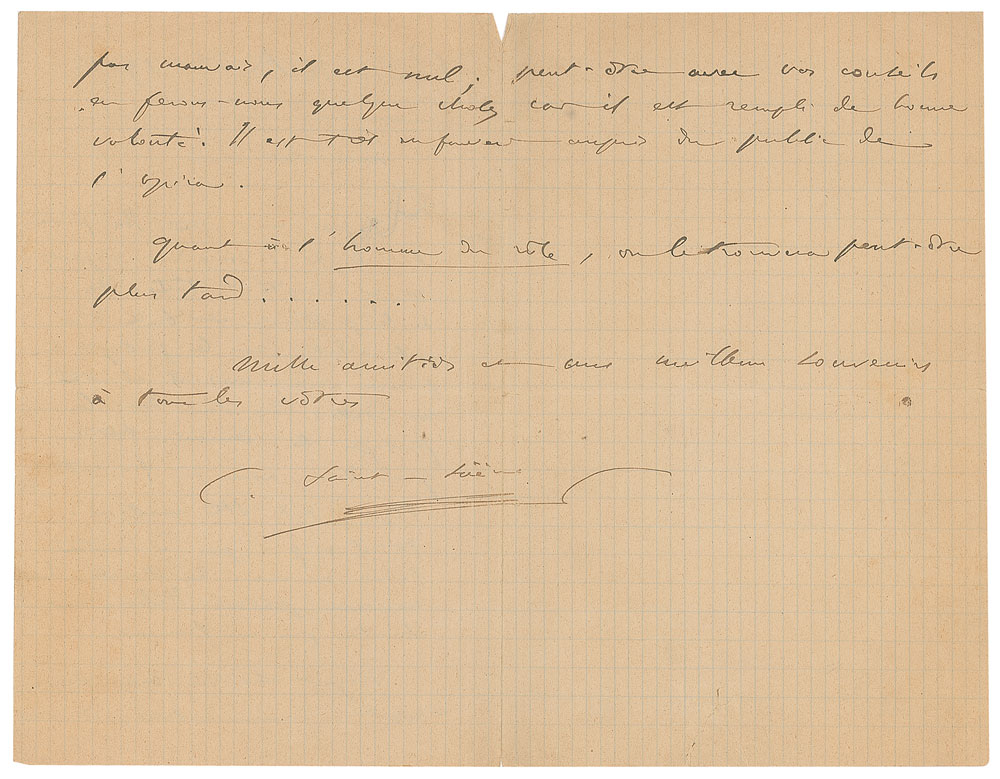 pas mauvais, il est nul; peut-être avec vos conseils
en ferons-nous quelque chose, car il est rempli de bonne
volonté. Il est très en faveur auprès du public de
l'opéra.
quant à l'homme du rôle, on le trouvera peut-être
plus tard.......
Mille amitiés et mes meilleurs souvenirs
à tous les vôtres
C. Saint-Saëns